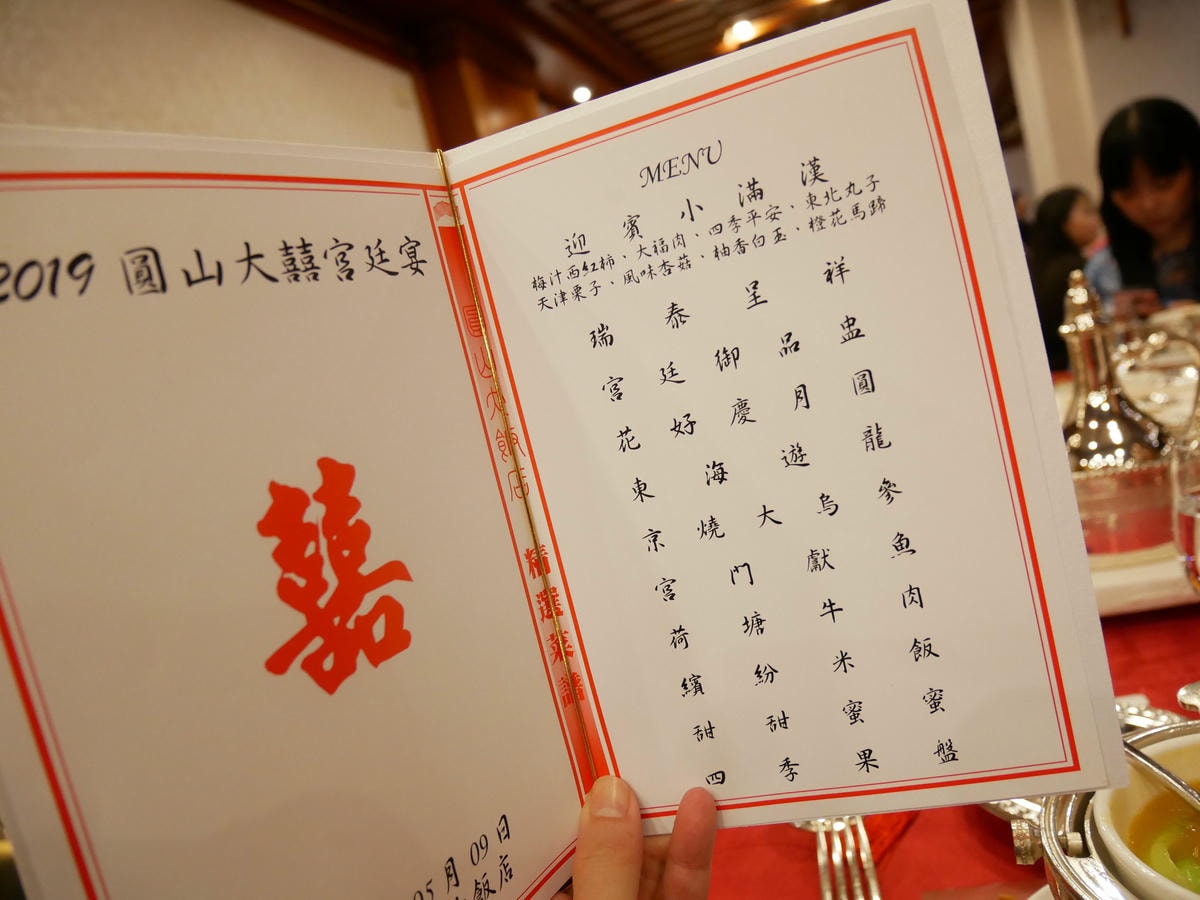 2019 圓山大囍宮廷宴
囍
05 月 09 日
飯店
圓山大飯店 精選菜譜
MENU
迎賓小滿漢
梅汁西紅柿、大福肉、四季平安、東北丸子
天津栗子、風味杏菇、柚香白玉、橙花馬蹄
瑞泰呈祥
宮廷御品盅
花好慶月圓
東海遊龍
京燒大烏參
宮門獻魚
荷塘牛肉
繽紛米飯
甜甜蜜蜜
四季果盤